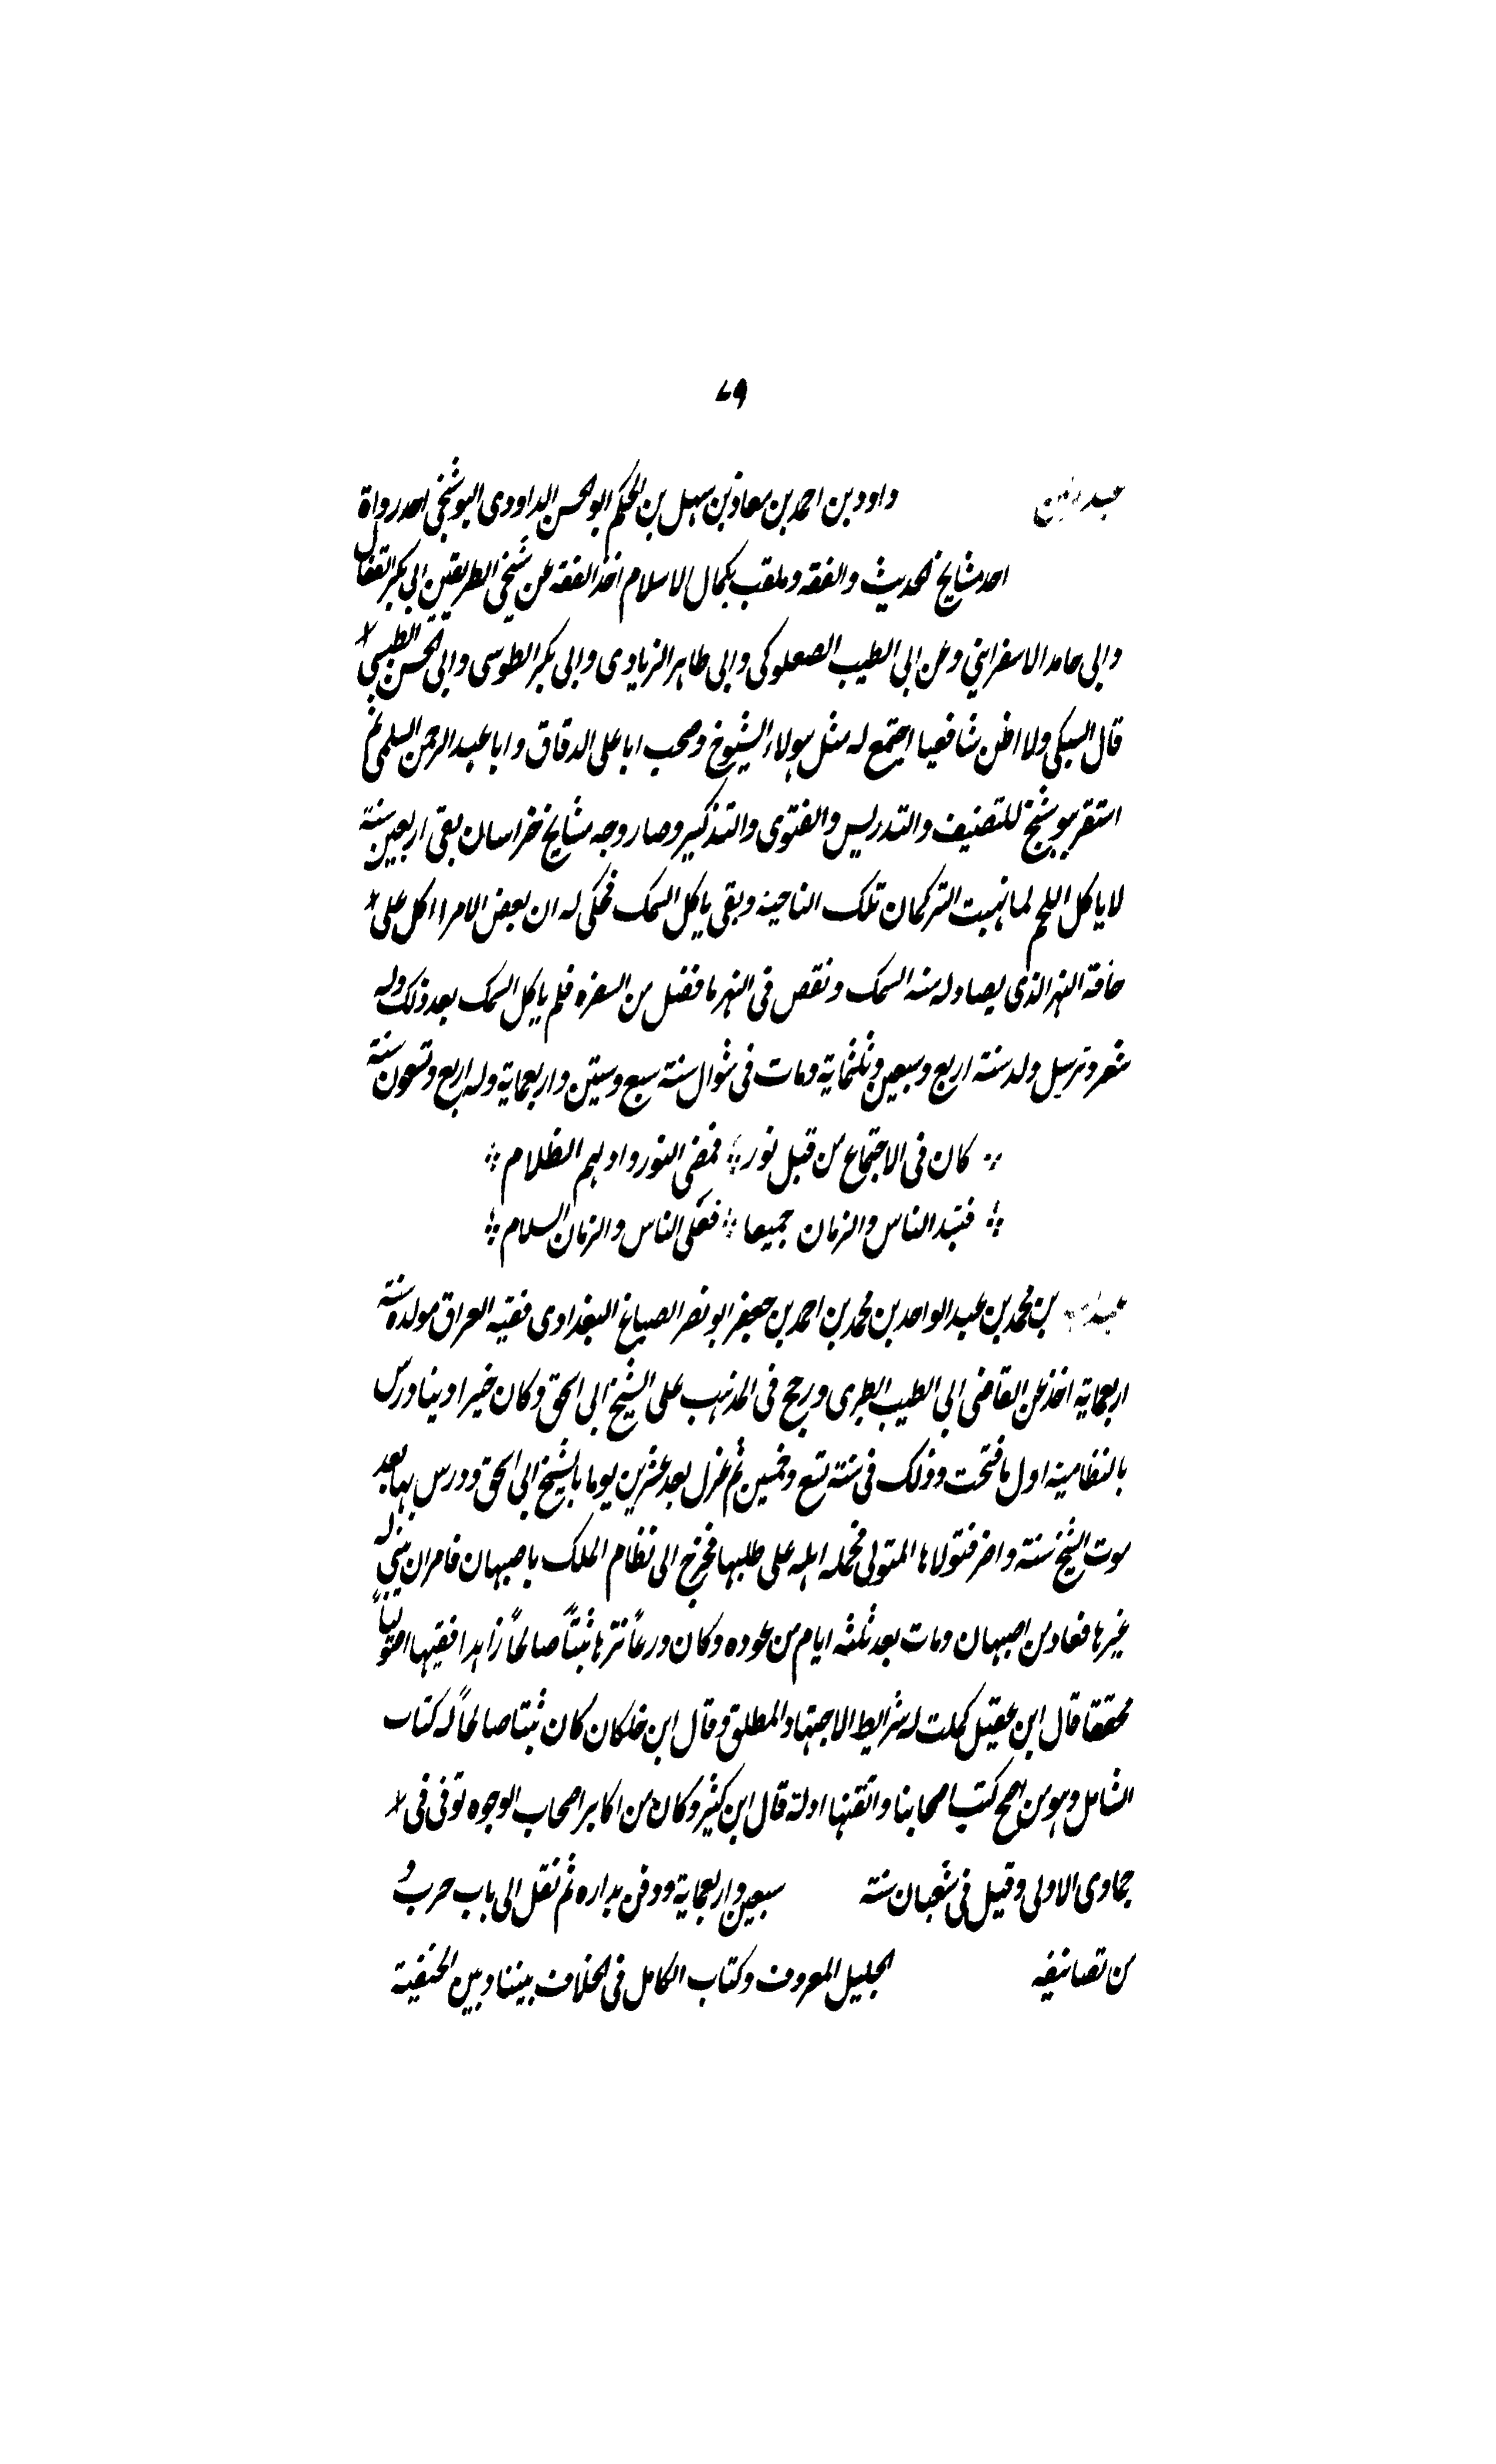 ۷۹
داود بن احمد بن معاذ بن سهل بن الحكم ابو الحسن الداودى البوشنجى احد رواة
احد مشايخ الحديث والفقه وملقب بكمال الاسلام اخذ الفقه عن شيخى الطريقين ابى بكر القفال
وابى حامد الاسفراينى وعن ابى الطيب الصعلوكى وابى طاهر الزيادى وابى بكر الطوسى وابى الحسن الطبسى
قال السبكى ولا اظن شافعيا اجتمع له مثل هولاء الشيوخ وصحب ابا على الدقاق وابا عبد الرحمن السلمى ثم
استقر ببوشنج للتصنيف والتدريس والفتوى والتذكير وصار وجه مشايخ خراسان بقى اربعين سنة
لا ياكل اللحم لما نهبت التركمان تلك الناحية وبقى ياكل السمك فحكى له ان بعض الامرا اكل على
حافة النهر الذى يصاد له منه السمك ونفض فى النهر ما فضل من السفره فلم ياكل السمك بعد ذلك وله
شعر وترسل ولد سنة اربع وسبعين وثلثماية ومات فى شوال سنة سبع وستين واربعماية وله اربع وتسعون سنة
كان فى الاجتماع من قبل نور ؞ فمضى النور وادلهم الظلام ؞
فسد الناس والزمان جميعا ؞ فعلى الناس والزمان السلام ؞
بن محمد بن عبد الواحد بن محمد بن احمد بن جعفر ابو نصر الصباغ البغدادى فقيه العراق مولده سنة
اربعماية اخذ عن القاضى ابى الطيب الطبرى ورجح فى المذهب على الشيخ ابى اسحق وكان خيرا دينا درس
بالنظامية اول ما فتحت وذلك فى سنة تسع وخمسين ثم عزل بعد عشرين يوما بالشيخ ابى اسحق ودرس بها بعد
موت الشيخ سنة واخر فتولاها المتولى فحمله اهله على طلبها فخرج الى نظام الملك باصبهان فامر ان يبنى له
غيرها فعاد من اصبهان ومات بعد ثلثه ايام من عوده وكان ورعاً نزها ثبتاً صالحاً زاهدا فقيها اصولياً
محققا قال ابن عقيل كملت له شرايط الاجتهاد المطلق وقال ابن خلكان كان ثبتا صالحاً له كتاب
الشامل وهو من اصح كتب اصحابنا واتقنها ادلة قال ابن كثير وكان من اكابر اصحاب الوجوه توفى فى
جمادى الاولى وقيل فى شعبان سنة سبعين واربعماية ودفن بداره ثم نقل الى باب حرب و
من تصانيفه الجليل المعروف وكتاب الكامل فى الخلاف بيننا وبين الحنفية